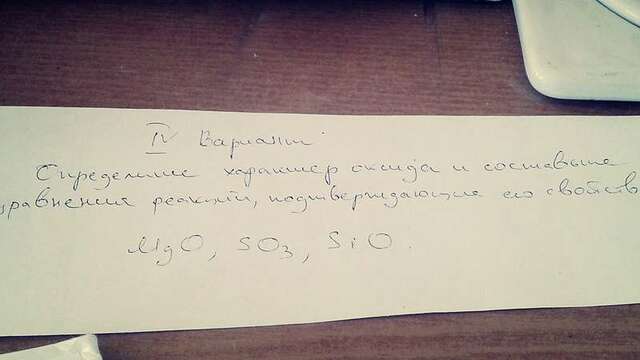 IV Вариант
Определите характер оксида и составьте
уравнения реакций, подтверждающие его свойств
MgO, SO3, SiO.